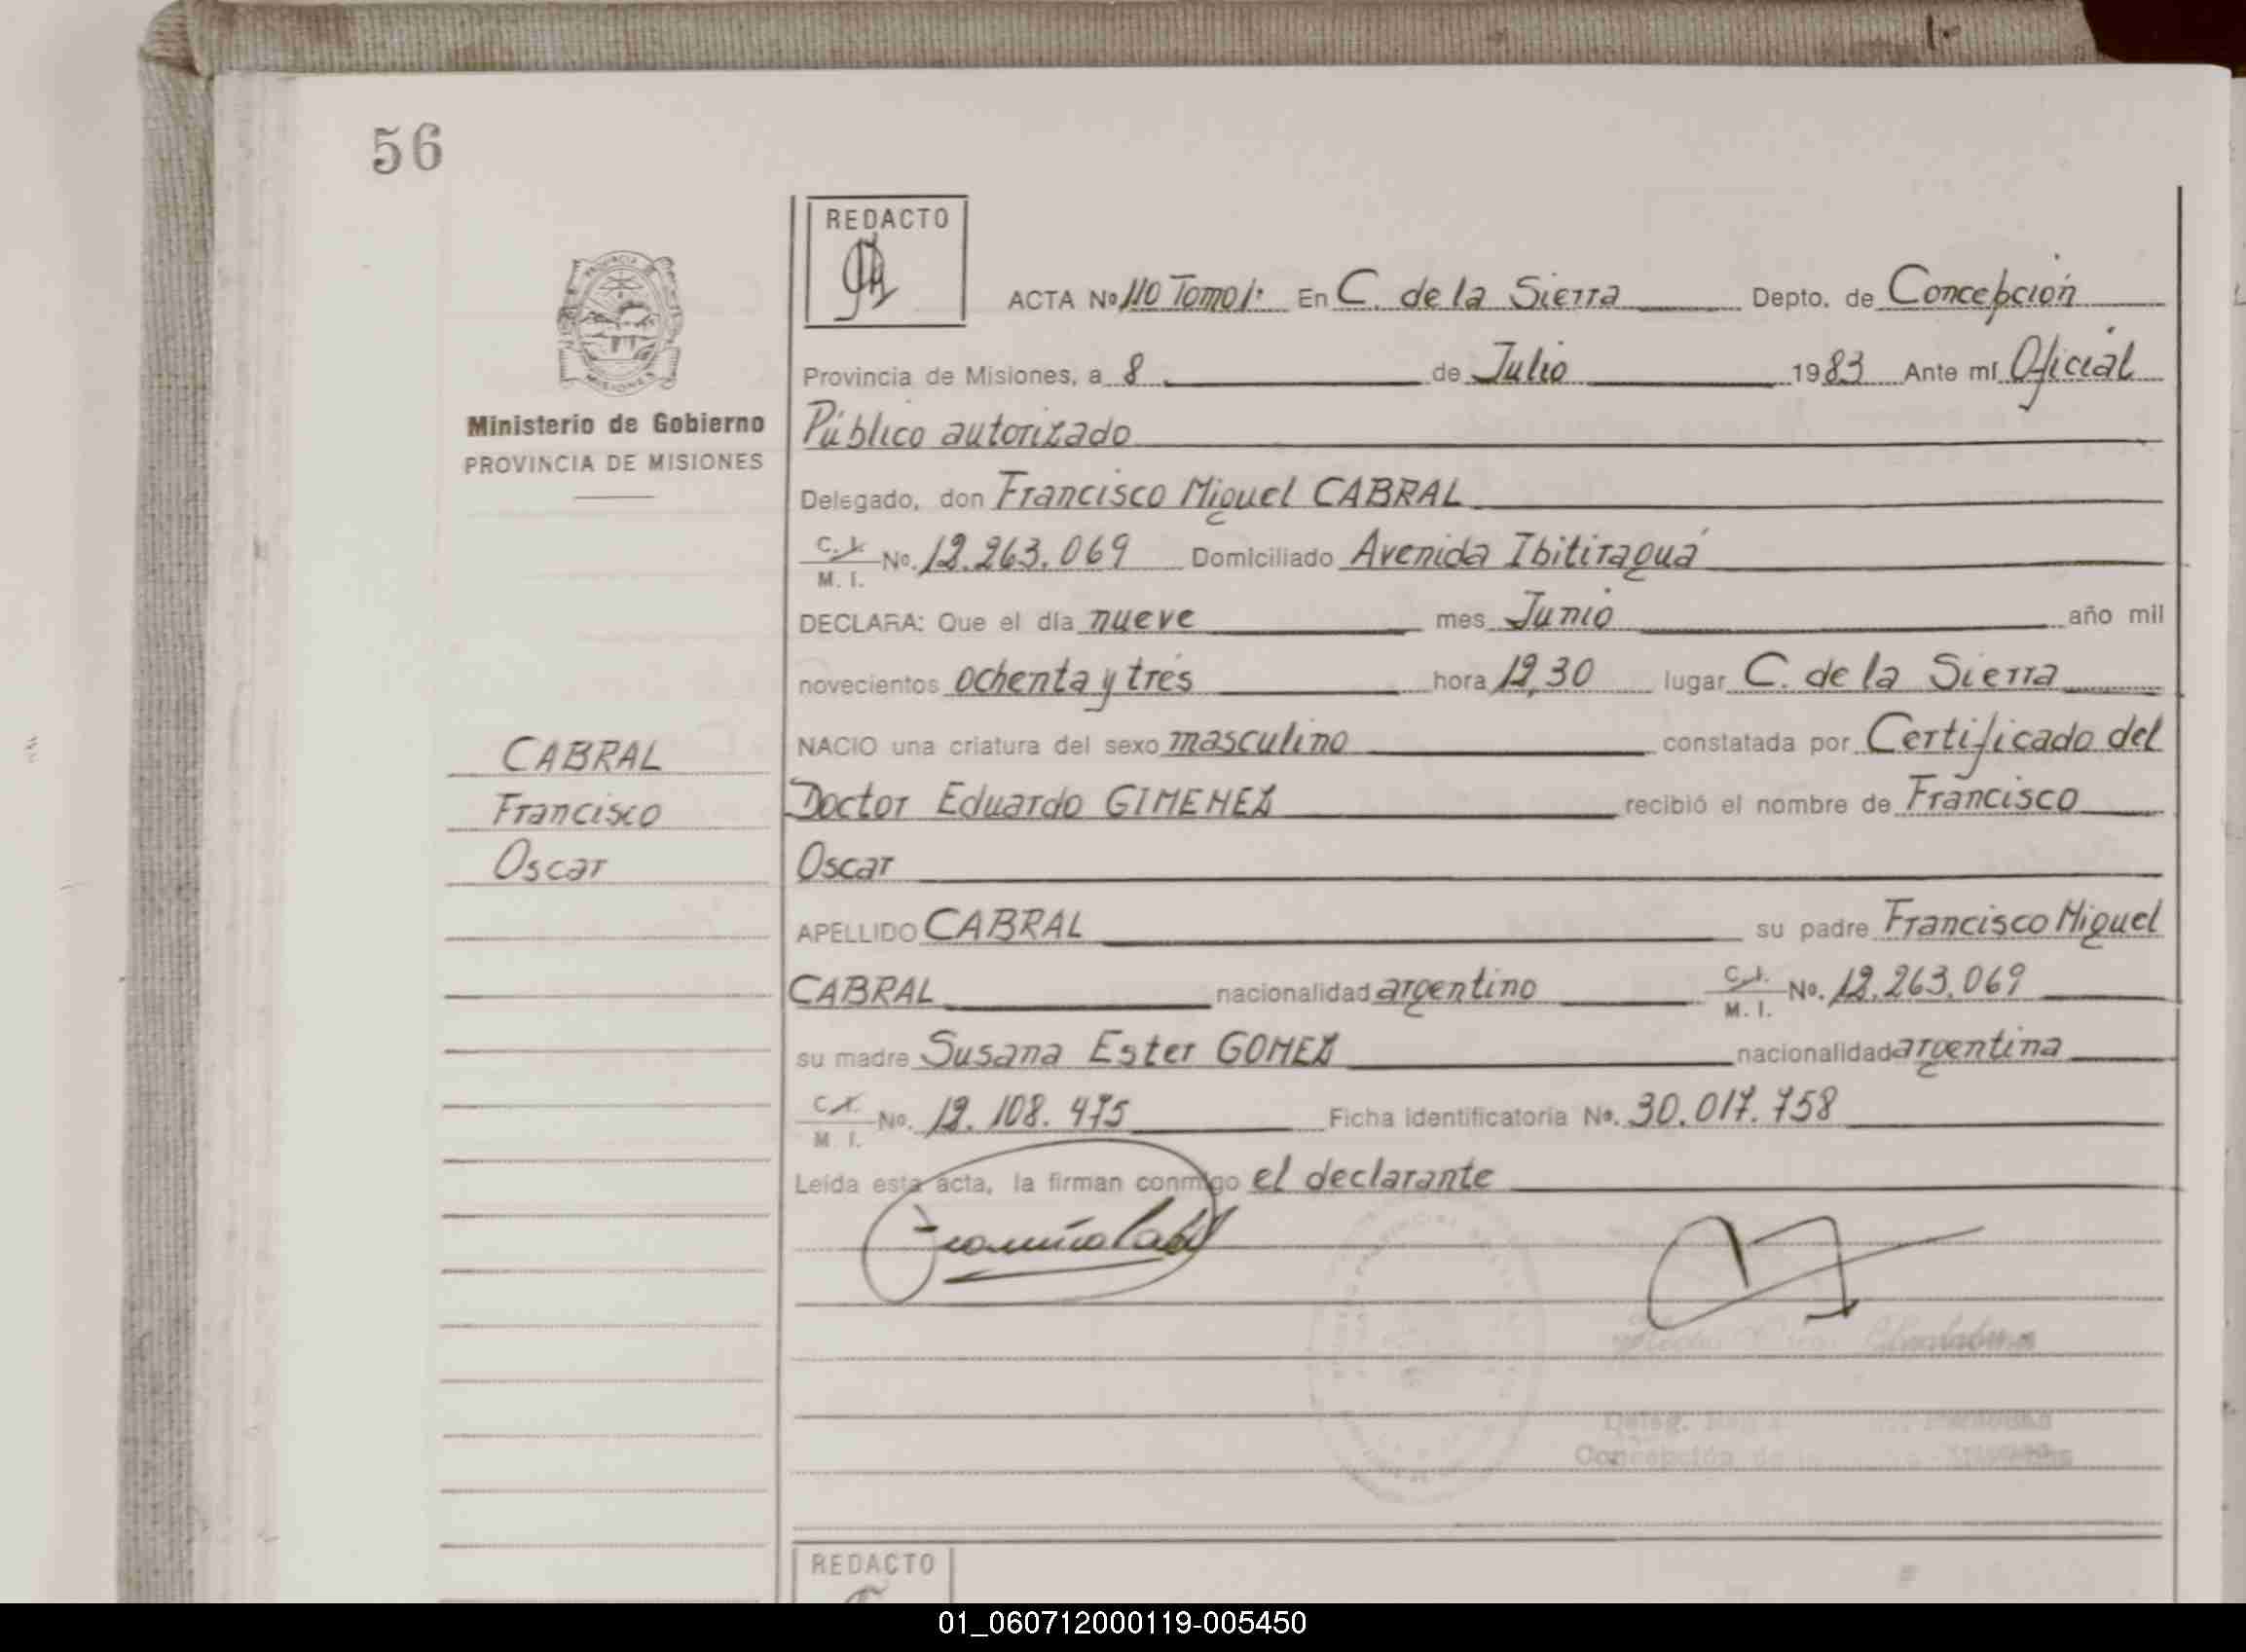 56
REDACTO
ACTA Nº 110 Tomo 1º En C. de la Sierra Depto. de Concepción
Provincia de Misiones, a 8 de Julio 1983 Ante mí Oficial
Ministerio de Gobierno
PROVINCIA DE MISIONES
Público autorizado
Delegado, don Francisco Miguel CABRAL
C.I. M. I. No. 12.263.069 Domiciliado Avenida Ibitiraguá
DECLARA: Que el día nueve mes Junio año mil
novecientos ochenta y tres hora 12,30 lugar C. de la Sierra
NACIO una criatura del sexo masculino constatada por Certificado del
CABRAL
Doctor Eduardo GIMENEZ recibió el nombre de Francisco
Francisco
Oscar
Oscar
APELLIDO CABRAL su padre Francisco Miguel
CABRAL nacionalidad argentino C.I. M. I. No. 12.263.069
su madre Susana Ester GOMEZ nacionalidad argentina
C.I. M. I. No. 12.108.475 Ficha identificatoria No. 30.017.758
Leída esta acta, la firman conmigo el declarante
Concepción de
REDACTO
01_060712000119-005450